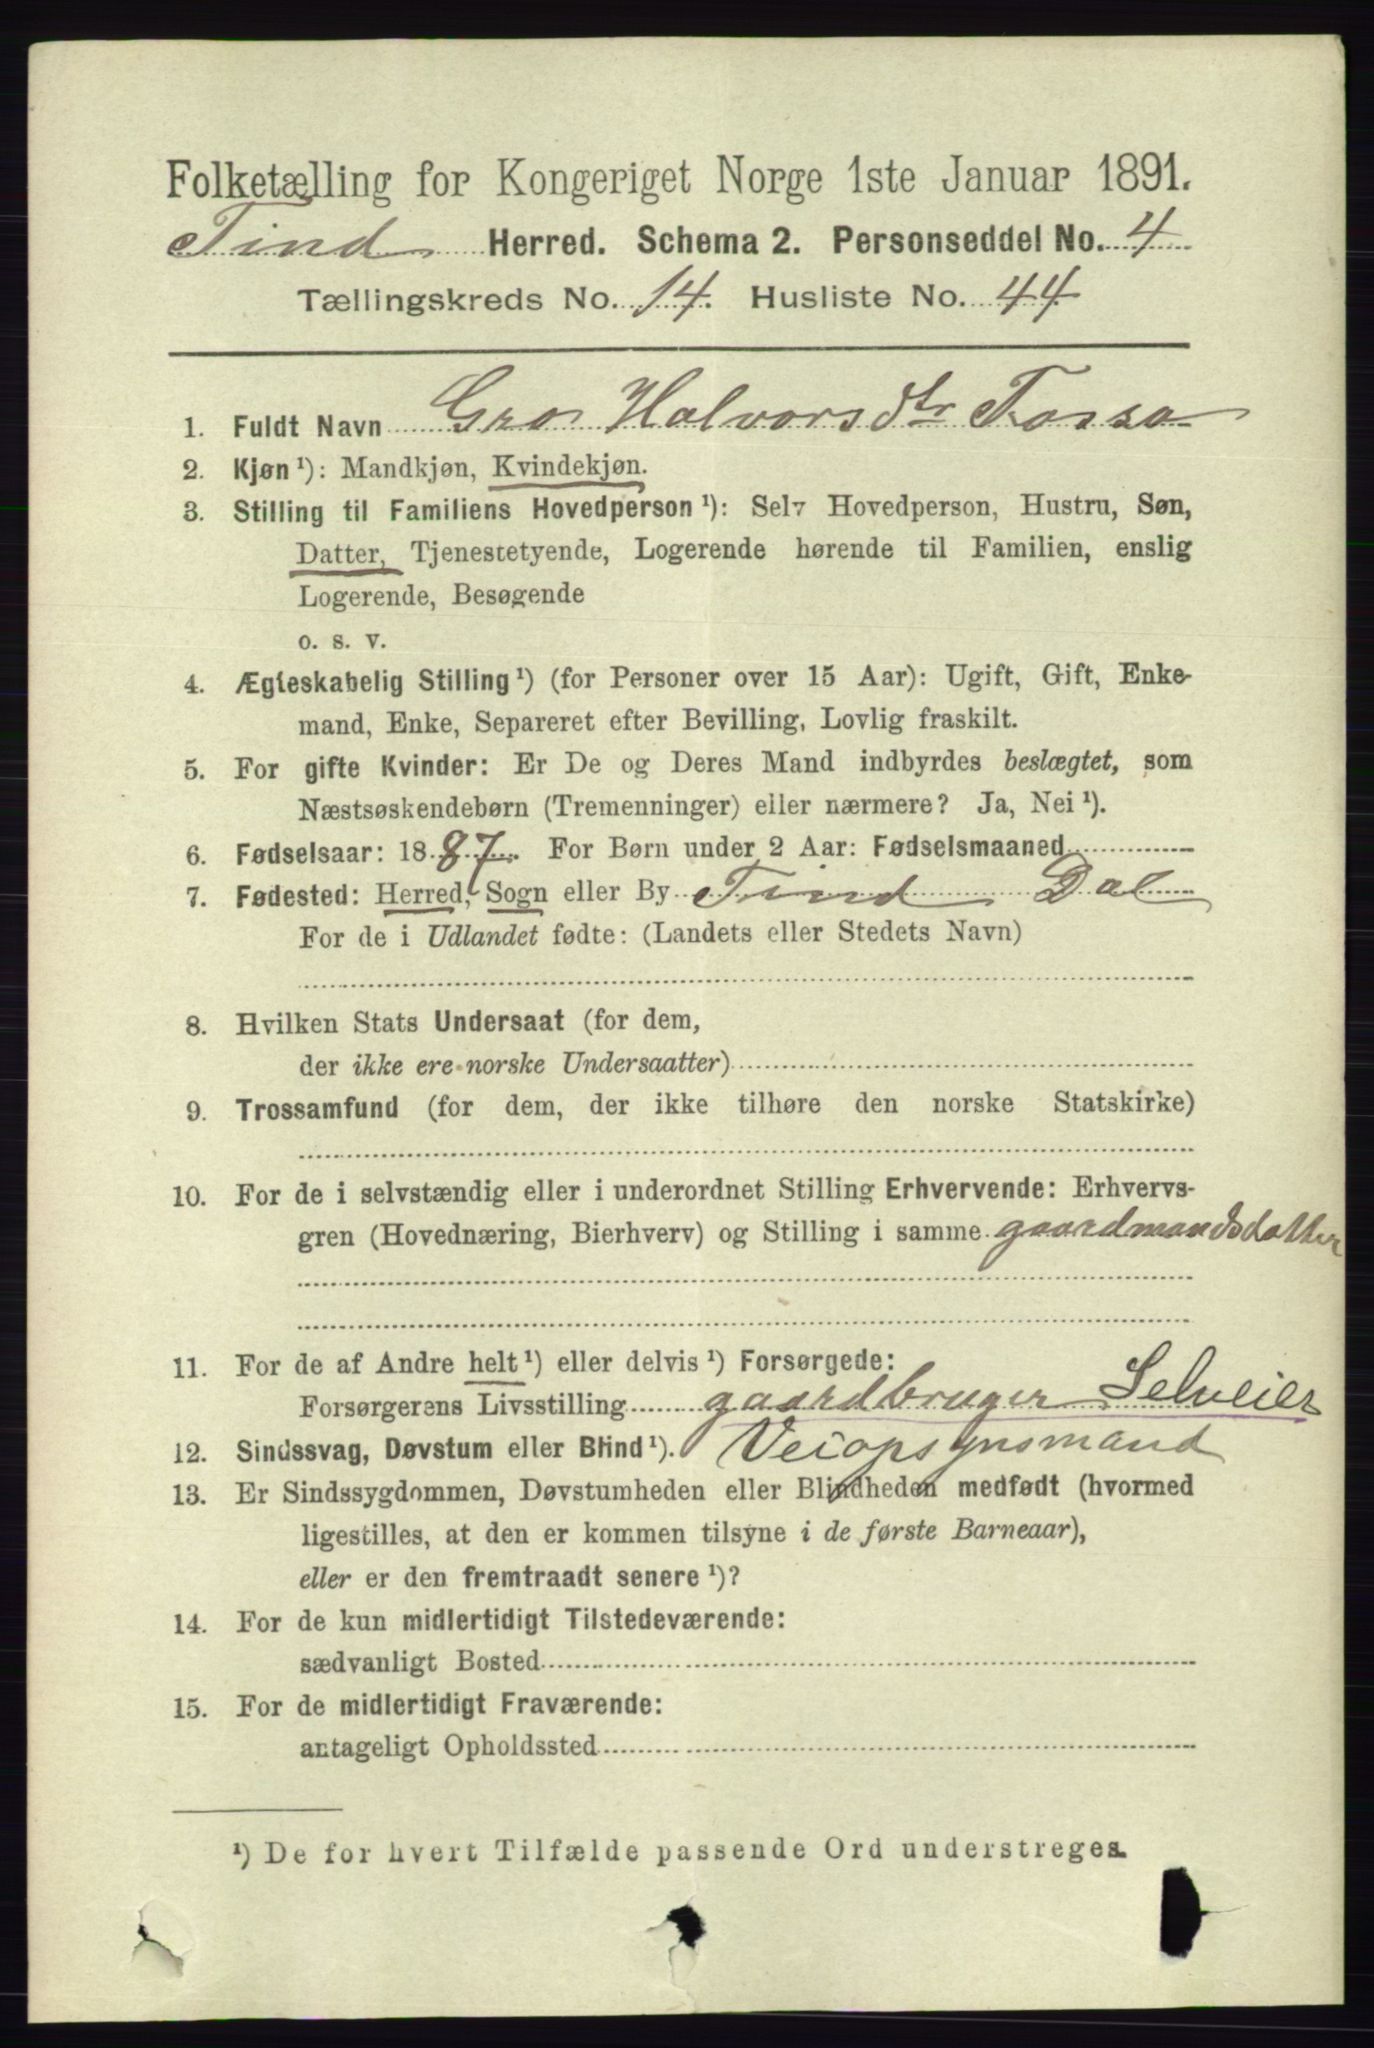 Folketælling for Kongeriget Norge 1ste Januar 1891.
Tind Herred. Schema 2. Personseddel No. 4
Tællingskreds No. 14. Husliste No. 44
1. Fuldt Navn Gro Halvorsdtr Fosso
2. Kjøn ¹): Mandkjøn, Kvindekjøn.
3. Stilling til Familiens Hovedperson ¹): Selv Hovedperson, Hustru, Søn,
Datter, Tjenestetyende, Logerende hørende til Familien, enslig
Logerende, Besøgende
o. s. v.
4. Ægteskabelig Stilling ¹) (for Personer over 15 Aar): Ugift, Gift, Enke-
mand, Enke, Separeret efter Bevilling, Lovlig fraskilt.
5. For gifte Kvinder: Er De og Deres Mand indbyrdes beslægtet, som
Næstsøskendebørn (Tremenninger) eller nærmere? Ja, Nei ¹).
6. Fødselsaar: 1887. For Børn under 2 Aar: Fødselsmaaned
7. Fødested: Herred, Sogn eller By Tind Dal
For de i Udlandet fødte: (Landets eller Stedets Navn)
8. Hvilken Stats Undersaat (for dem,
der ikke ere norske Undersaatter)
9. Trossamfund (for dem, der ikke tilhøre den norske Statskirke)
10. For de i selvstændig eller i underordnet Stilling Erhvervende: Erhvervs-
gren (Hovednæring, Bierhverv) og Stilling i samme gaardmandsdatter
11. For de af Andre helt ¹) eller delvis ¹) Forsørgede:
Forsørgerens Livsstilling gaardbruger Selveier
12. Sindssvag, Døvstum eller Blind ¹). Veiopsynsmand
13. Er Sindssygdommen, Døvstumheden eller Blindheden medfødt (hvormed
ligestilles, at den er kommen tilsyne i de første Barneaar),
eller er den fremtraadt senere ¹)?
14. For de kun midlertidigt Tilstedeværende:
sædvanligt Bosted
15. For de midlertidigt Fraværende:
antageligt Opholdssted
¹) De for hvert Tilfælde passende Ord understreges.